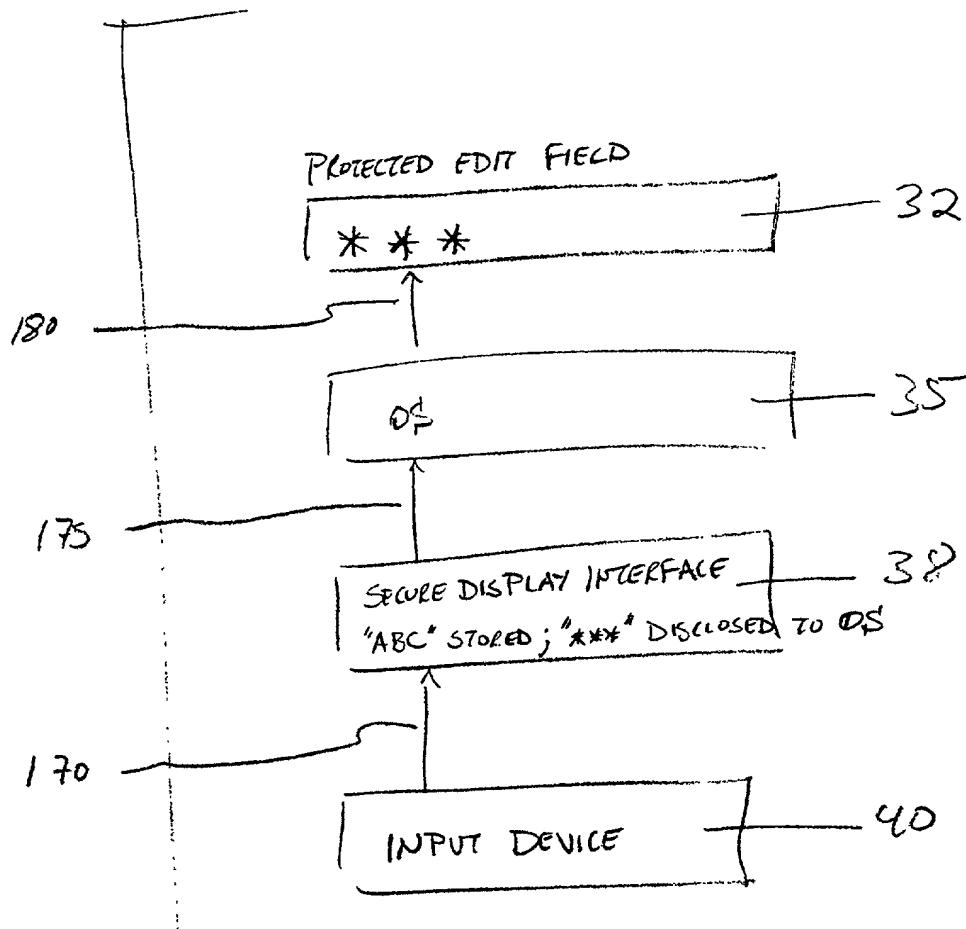 PROTECTED EDIT FIELD
* * *
32
180
OS
35
175
SECURE DISPLAY INTERFACE
"ABC" STORED; "***" DISCLOSED TO OS
38
170
INPUT DEVICE
40